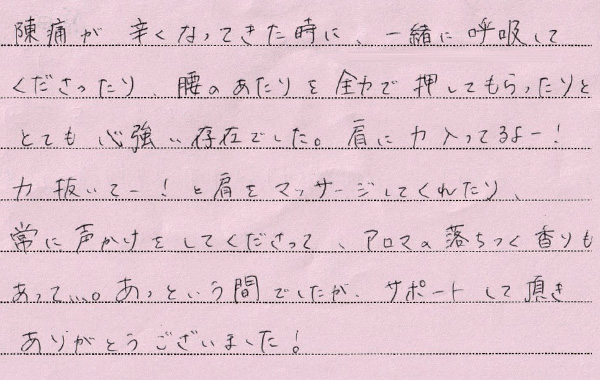 陳痛が辛くなってきた時に、一緒に呼吸して
くださったり、腰のあたりを全力で押してもらったりと
とても心強い存在でした。肩に力入ってるよー!
力抜いてー!と肩をマッサージしてくれたり、
常に声かけをしてくださって、アロマの落ちつく香りも
あって…。あっという間でしたが、サポートして頂き
ありがとうございました!